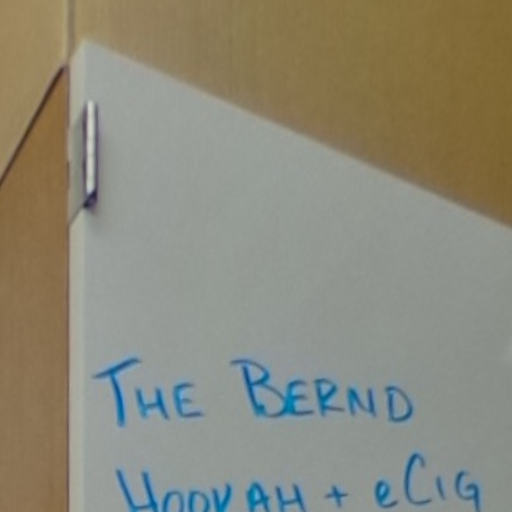 THE BERND
HOOKAH + eCIG